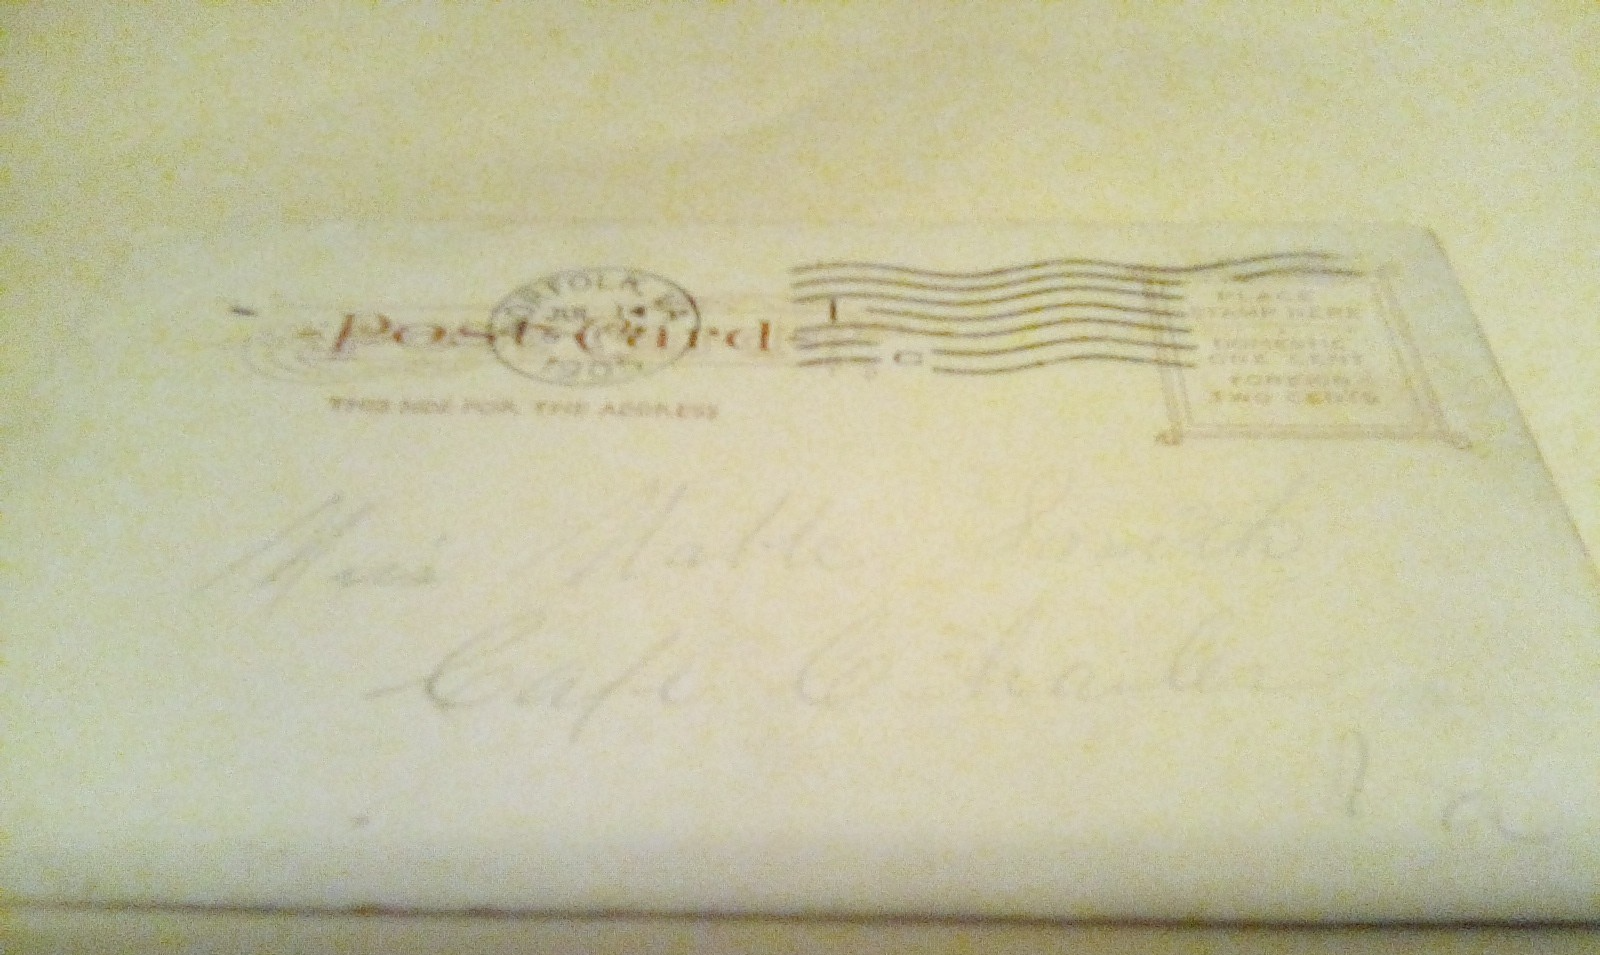 NORFOLK, VA
JUL 14
1905
Post Card
1
C
THIS SIDE FOR THE ADDRESS
PLACE
STAMP HERE
DOMESTIC
ONE CENT
FOREIGN
TWO CENTS
Miss Mable Smith
Cape Charles
Va